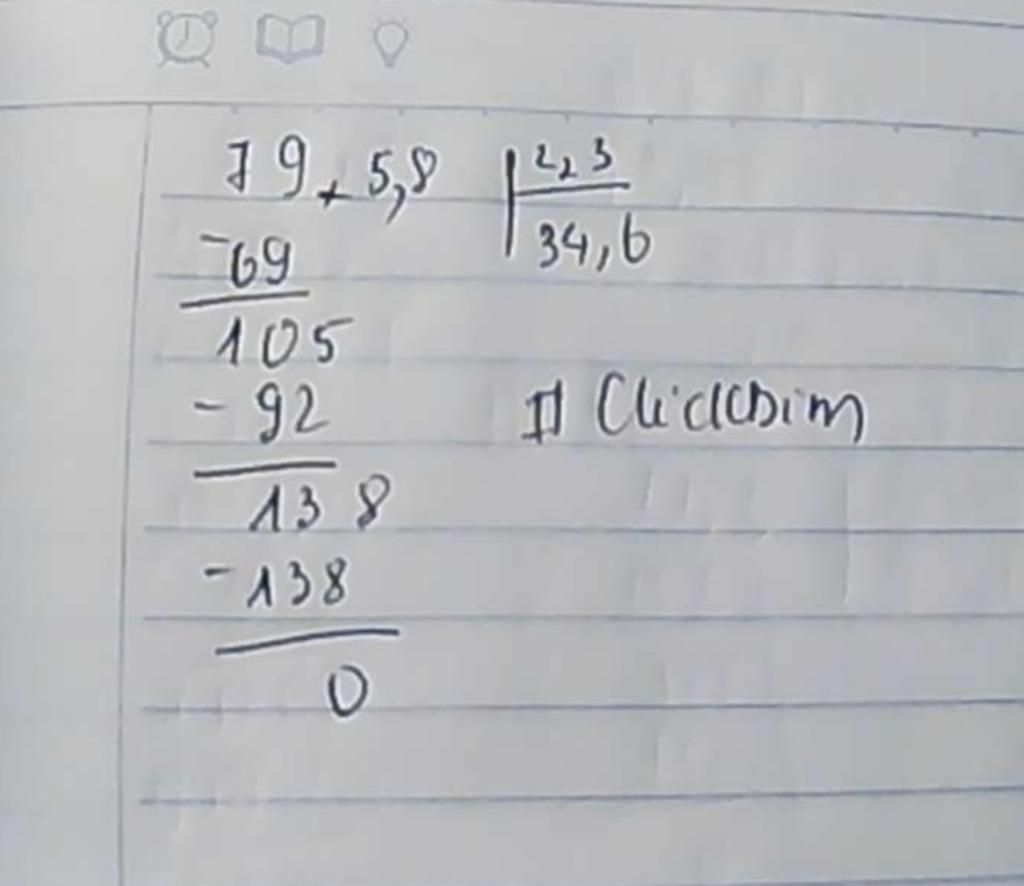 79,5,8 2,3
34,6
-69
105
-92
138
-138
0